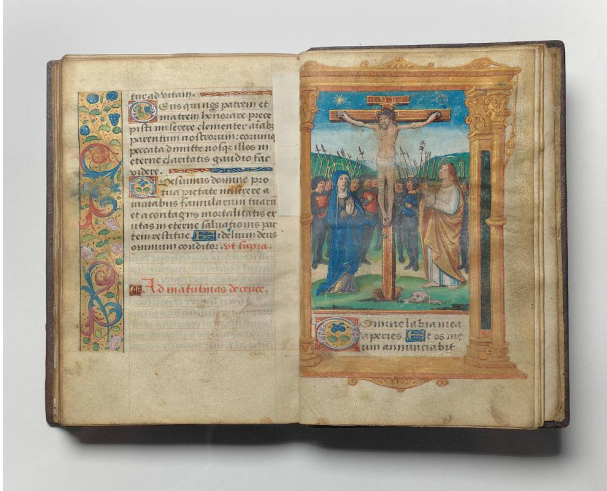 tur ad vitam.
Deus qui nos patrem et
matrem honorare prece
pisti miserere clementer aiab
parentum nostrorum eorumq
peccata dimitte nosq illos in
eterne claritatis gaudio fac
videre.
Quesumus domine pro
tua pietate miserere a
niabus famularum tuarū
et a contagiis mortalitatis ex
utas in eterne saluationis par
tem restitue Fidelium deus
omnium conditor. vt supra.
Ad matutinas de cruce.
Domine labia mea
aperies Et os me
um annunciabit